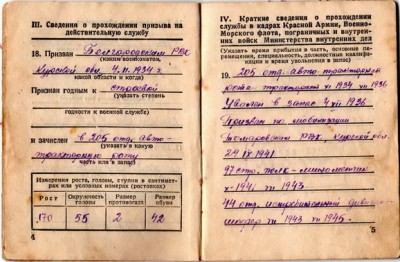 III. Сведения о прохождении призыва на
действительную службу
18. Призван Белгородским РВК
(каким военкоматом,
Курской обл. 4.XI.1934 г.
какой области и когда)
Призван годным к строевой
(указать степень
годности к военной службе)
и зачислен в 205 отд. авто-
(указать в какую
часть или в запас)
Измерения роста, головы, ступни в сантимет-
рах или условных номерах (ростовках)
Рост
Окружность головы
Размер противогаза
Размер обуви
170
56
2
42
4
IV. Краткие сведения о прохождении
службы в кадрах Красной Армии, Военно-
Морского флота, пограничных и внутрен-
них войск Министерства внутренних дел
(Указать время прибытия в часть, основные пе-
ремещения, специальность, должностные квалифи-
кации и время увольнения в запас)
19. 205 отд. авто-тракторная
XI 1934 1936
Уволен в запас 4 XII 1936
Призван по мобилизации
Томаровским РВК, Курской обл.
24 IX 1941
X-1941 1943
44 отд. истребительный
1943 1945.
5